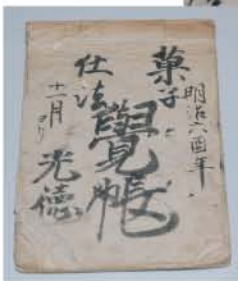 明治六酉年
菓子
仕法
覺帳
十一月ヨリ
光德